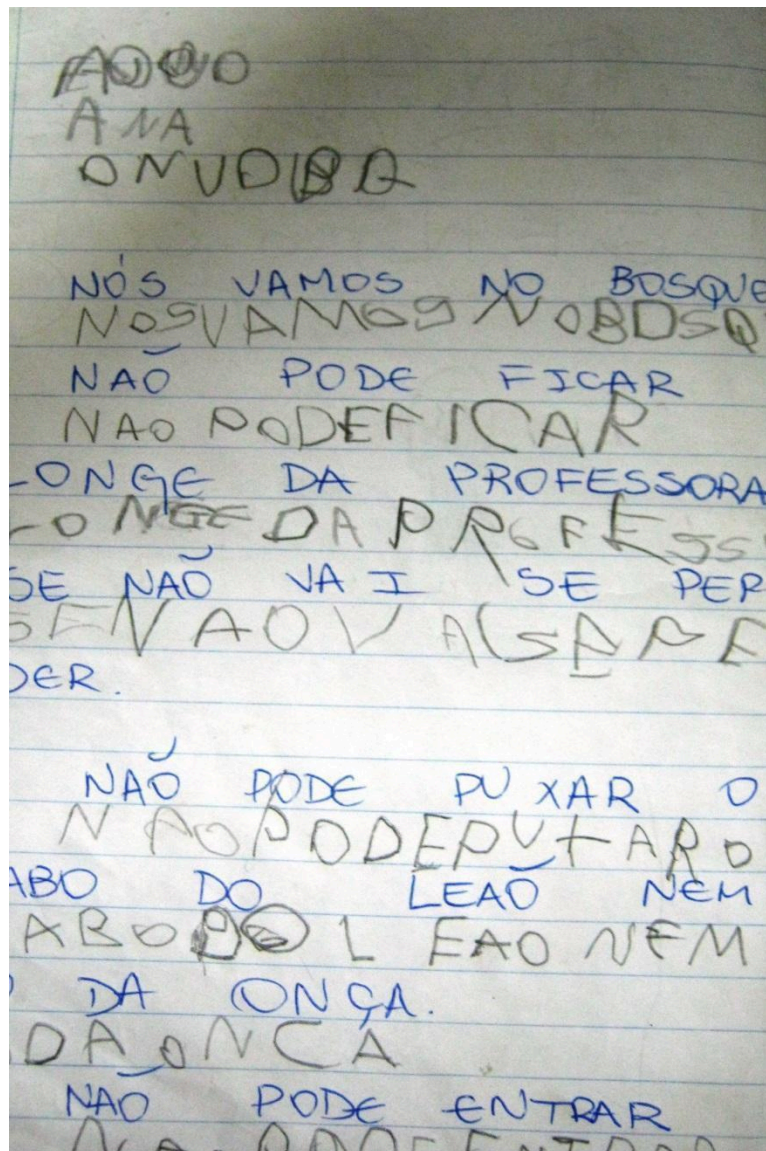 ANA
NÓS VAMOS NO BOSQUE
NOSVAMOS NOBOSQ
NÃO PODE FICAR
NAO PODEFICAR
LONGE DA PROFESSORA
LONGEDAPROFESS
SE NÃO VAI SE PER
SENAOVAISEPE
DER.
NÃO PODE PUXAR O
NAOPODEPUXARO
ABO DO LEÃO NEM
ABODOLEAO NEM
DA ONÇA.
DAONCA
NÃO PODE ENTRAR